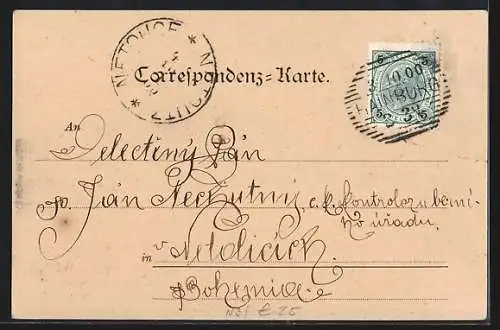 NETOLICE * NETOLITZ *
Correspondenz-Karte.
10 00
HAINBURG
An
Velectěný Pán
Pán Jan Nechutný, c. k. Kontrolor berní-
ho úřadu,
in v Netolicích
Bohemia